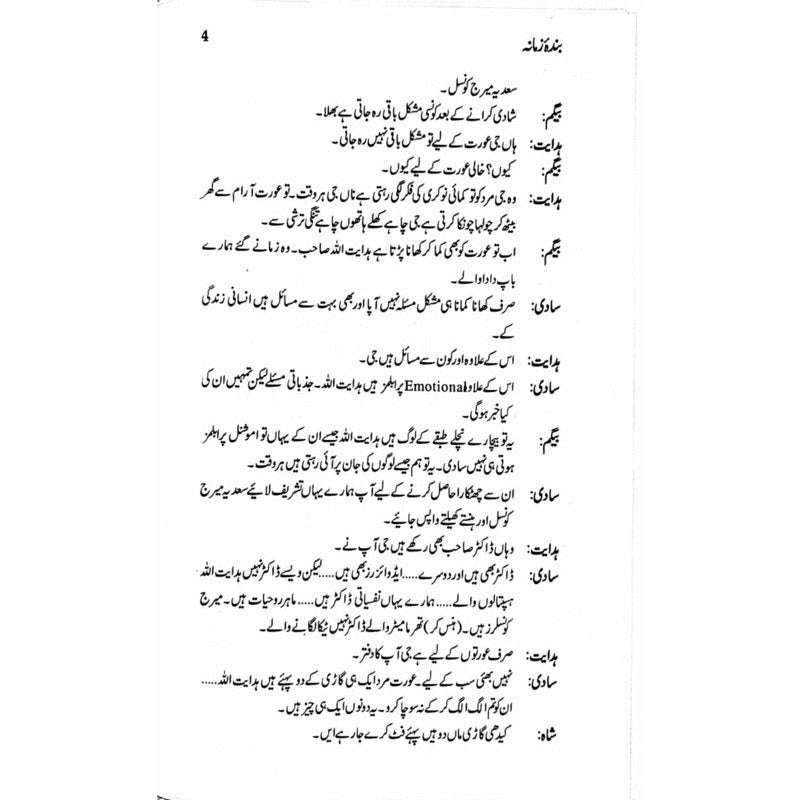 بندۂ زمانہ
4
سعدیہ میرج کونسل۔
بیگم: شادی کرانے کے بعد کونسی مشکل باقی رہ جاتی ہے بھلا۔
ہدایت: ہاں جی عورت کے لیے تو مشکل باقی نہیں رہ جاتی۔
بیگم: کیوں؟ خالی عورت کے لیے کیوں۔
ہدایت: وہ جی مرد کو تو کمائی نوکری کی فکر لگی رہتی ہے ناں جی ہر وقت۔ تو عورت آرام سے گھر
بیٹھ کر چولہا چونکا کرتی ہے جی چاہے کھلے ہاتھوں چاہے تنگی ترشی سے۔
بیگم: اب تو عورت کو بھی کما کر کھانا پڑتا ہے ہدایت اللہ صاحب۔ وہ زمانے گئے ہمارے
باپ دادا والے۔
سادی: صرف کھانا کمانا ہی مشکل مسئلہ نہیں آیا اور بھی بہت سے مسائل ہیں انسانی زندگی
کے۔
ہدایت: اس کے علاوہ اور کون سے مسائل ہیں جی۔
سادی: اس کے علاوہ Emotional پرابلمز ہیں ہدایت اللہ۔ جذباتی مسئلے لیکن تمہیں ان کی
کیا خبر ہوگی۔
بیگم: یہ تو بیچارے نچلے طبقے کے لوگ ہیں ہدایت اللہ جیسے ان کے یہاں تو اموشنل پرابلمز
ہوتی ہی نہیں سادی۔ یہ تو ہم جیسے لوگوں کی جان پر آئی رہتی ہیں ہر وقت۔
سادی: ان سے چھٹکارا حاصل کرنے کے لیے آپ ہمارے یہاں تشریف لایئے سعدیہ میرج
کونسل اور ہنستے کھیلتے واپس جایئے۔
ہدایت: وہاں ڈاکٹر صاحب بھی رکھے ہیں جی آپ نے۔
سادی: ڈاکٹر بھی ہیں اور دوسرے..... ایڈوائزرز بھی ہیں..... لیکن ویسے ڈاکٹر نہیں ہدایت اللہ
ہسپتالوں والے..... ہمارے یہاں نفسیاتی ڈاکٹر ہیں..... ماہر روحیات ہیں۔ میرج
کونسلرز ہیں۔ (ہنس کر) تھرمامیٹر والے ڈاکٹر نہیں ٹیکا لگانے والے۔
ہدایت: صرف عورتوں کے لیے ہے جی آپ کا دفتر۔
سادی: نہیں بھئی سب کے لیے۔ عورت مرد ایک ہی گاڑی کے دو پہئے ہیں ہدایت اللہ.....
ان کو تم الگ الگ کر کے نہ سوچا کرو۔ یہ دونوں ایک ہی چیز ہیں۔
شاہ: کیدھی گاڑی ماں دو ہیں پہئے فٹ کرے جا رہے ایں۔